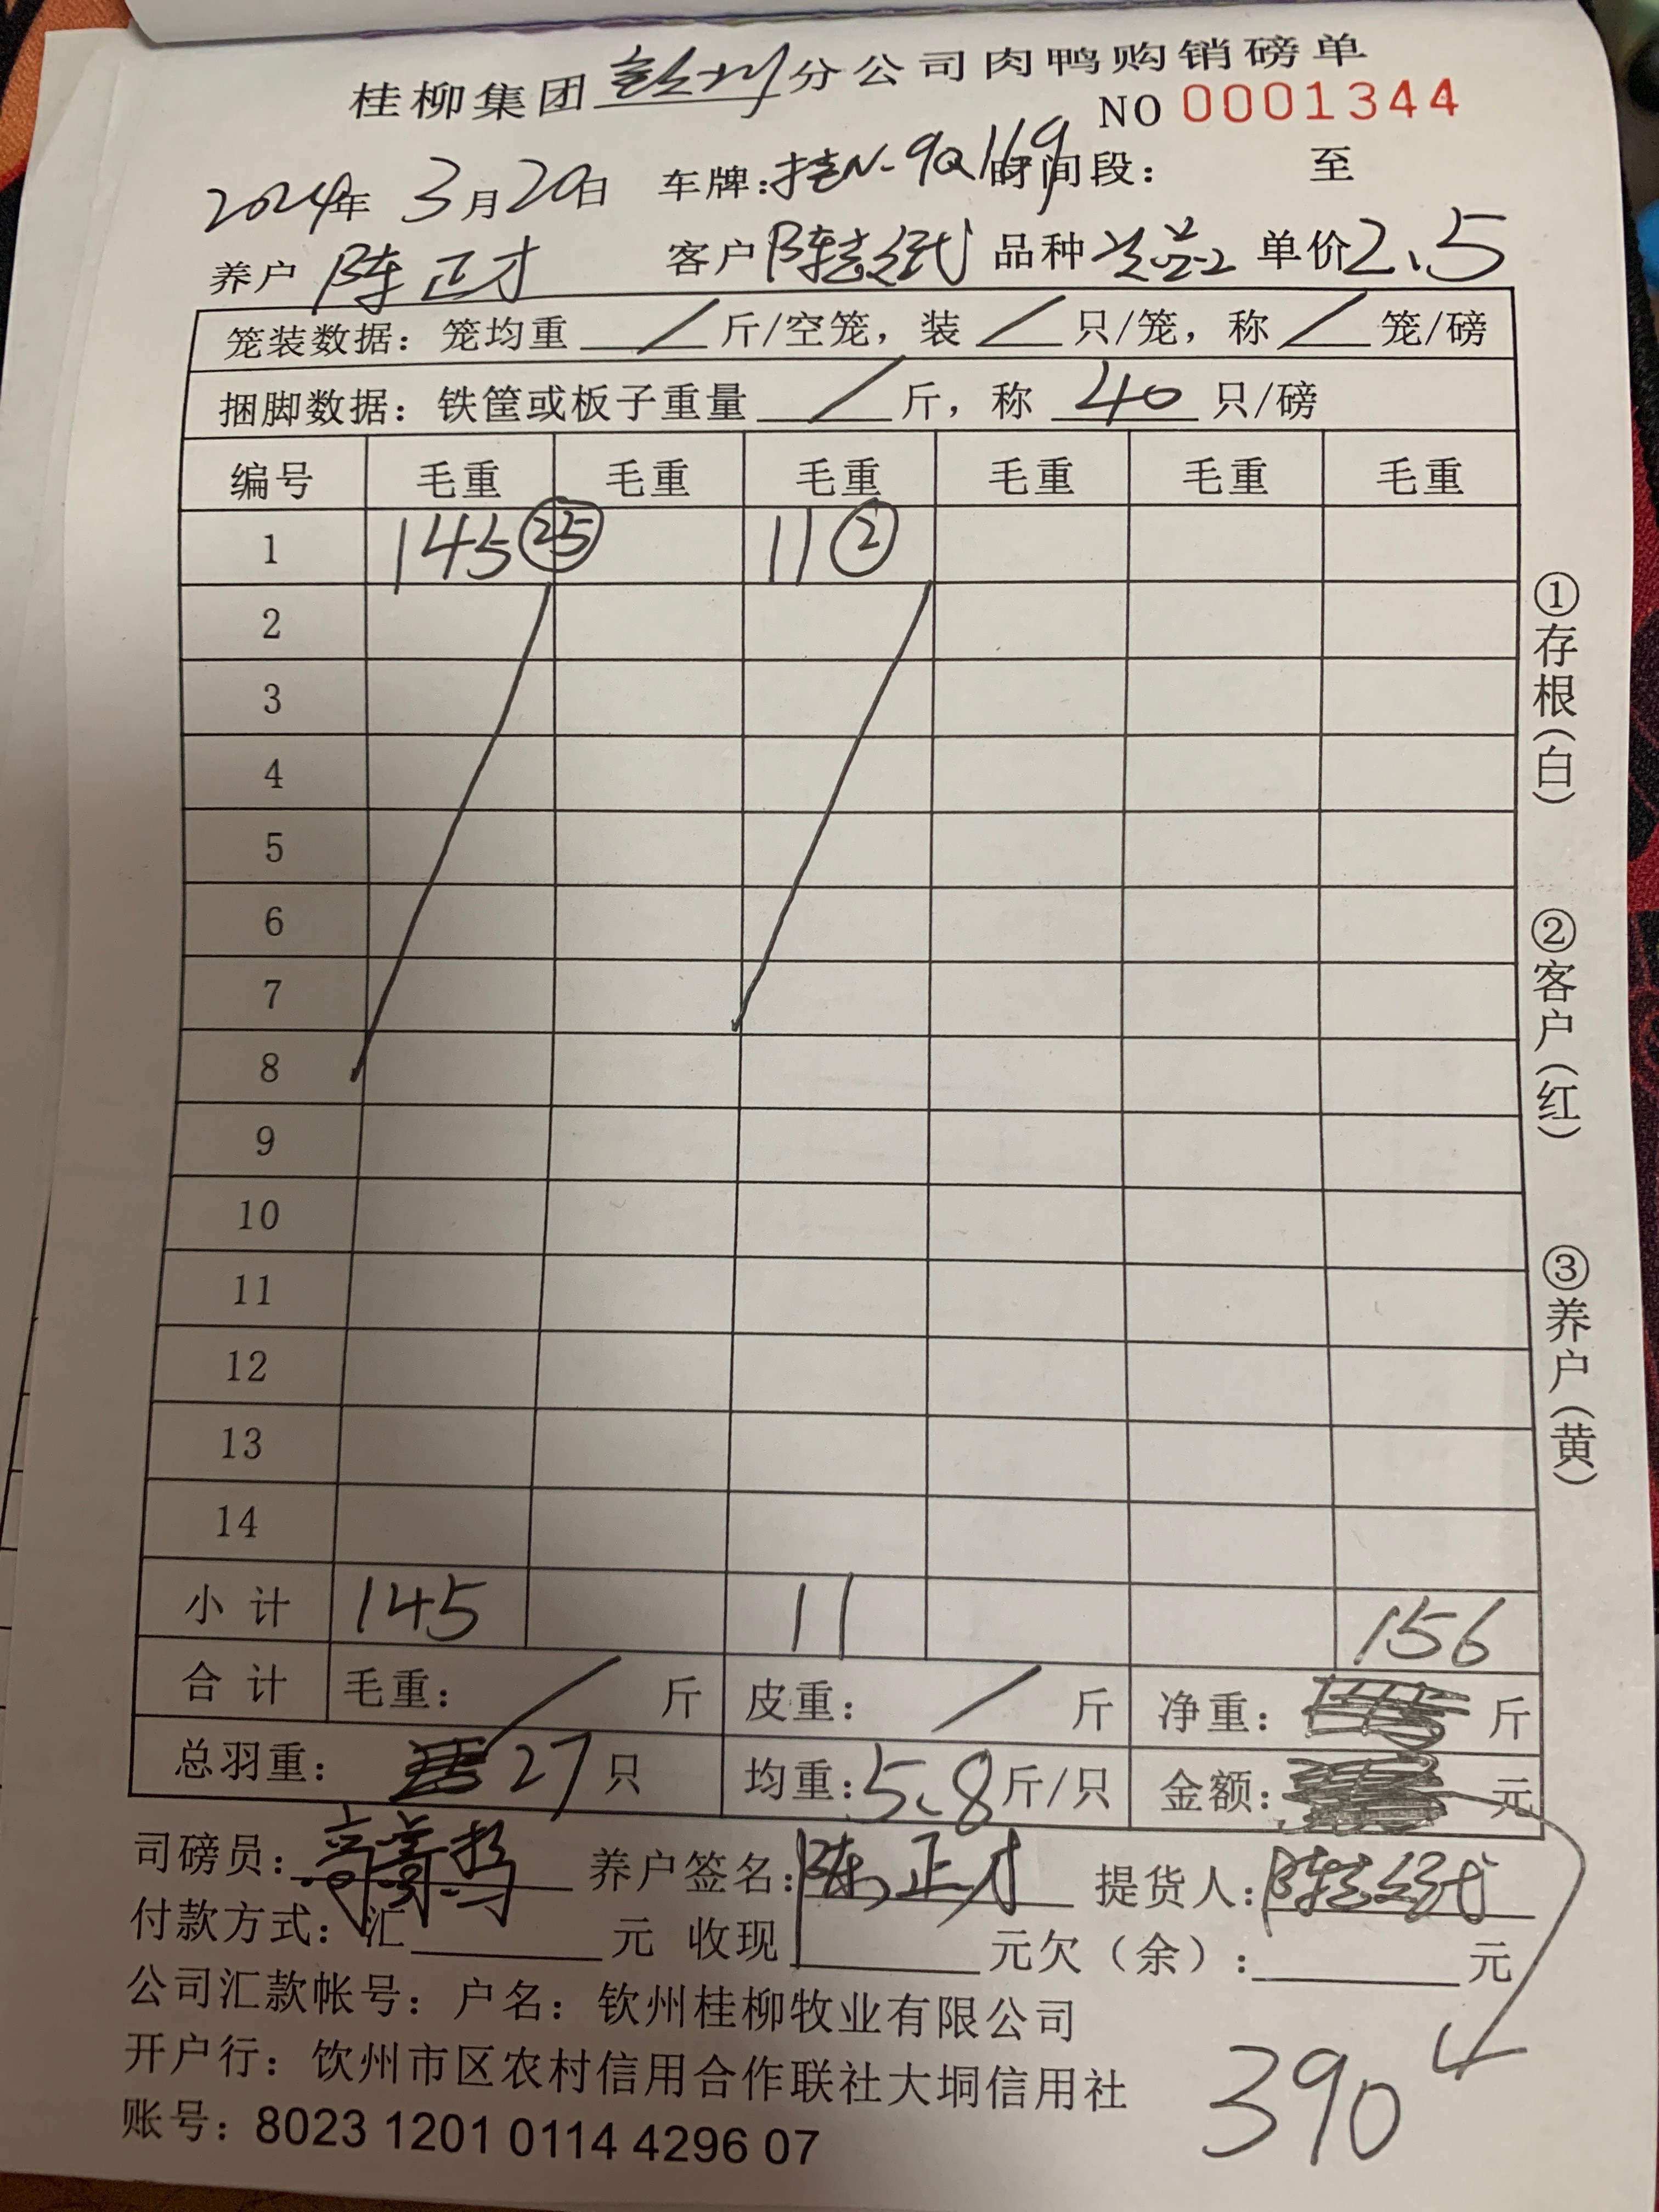 桂柳集团 钦州 分公司肉鸭购销磅单
NO 0001344
2024年 3月20日 车牌:桂N-9Q169 时间段: 至
养户 陈正才 客户 陈 品种 单价2.5
笼装数据: 笼均重 / 斤/空笼, 装 / 只/笼, 称 / 笼/磅
捆脚数据: 铁筐或板子重量 / 斤, 称 40 只/磅
编号 毛重 毛重 毛重 毛重 毛重 毛重
1 145 ㉕ 11 ②
2
3
4
5
6
7
8
9
10
11
12
13
14
小计 145 11 156
合计 毛重: / 斤 皮重: / 斤 净重: 斤
总羽重: 27 只 均重:5.8斤/只 金额: 元
司磅员: 养户签名:陈正才 提货人:陈
付款方式: 汇 元 收现 元欠(余): 元
公司汇款帐号: 户名: 钦州桂柳牧业有限公司
开户行: 钦州市区农村信用合作联社大垌信用社
账号: 8023 1201 0114 4296 07
390
①存根(白)
②客户(红)
③养户(黄)